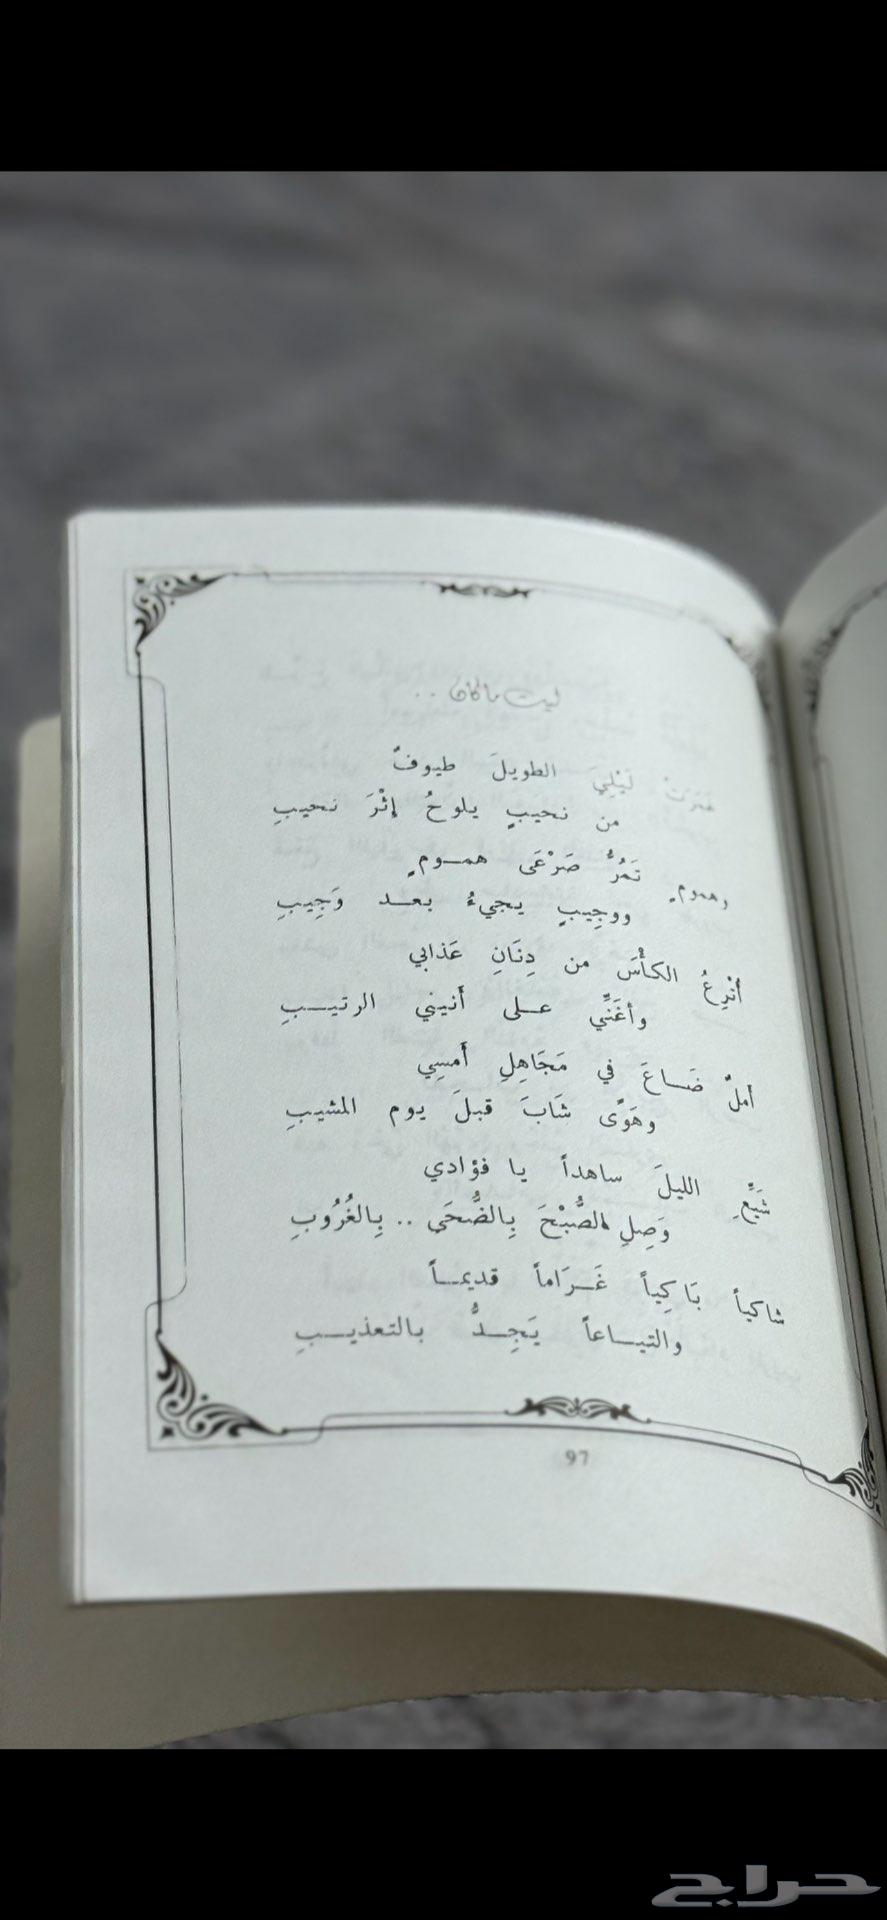 ليت ما كان ..
غمرتْ لَيْلِيَ الطويلَ طيوفٌ
من نحيبٍ يلوحُ إثْرَ نحيبِ
وهمومٍ تَمُرُّ صَرْعَى همــومٍ
ووجِيبٍ يجيءُ بعــد وَجِيبِ
أُتْرِعُ الكأْسَ من دِنَانِ عَذابي
وأغَنِّي علــى أَنيني الرتيــبِ
أملٌ ضَــاعَ في مَجَاهِلِ أَمسِي
وهَوًى شَابَ قبلَ يوم المشيبِ
شَيِّعِ الليلَ ساهداً يا فؤادي
وَصِلِ الصُّبْحَ بِالضُّحَى .. بِالغُرُوبِ
شاكياً بَاكِياً غَــرَاماً قديمــاً
والتيــاعاً يَجِــدُّ بالتعذيــبِ
97
حراج